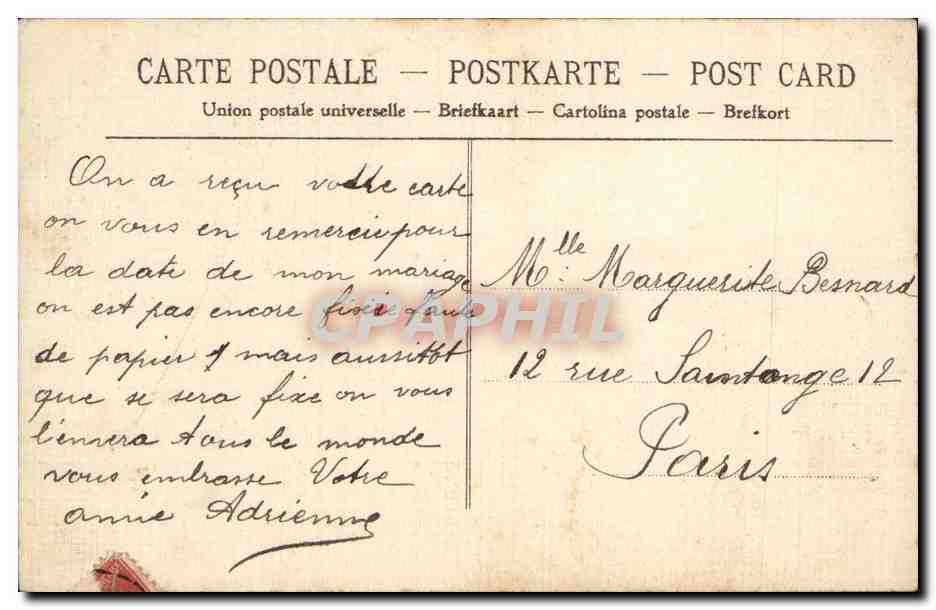 CARTE POSTALE — POSTKARTE — POST CARD
Union postale universelle — Briefkaart — Cartolina postale — Brefkort
On a reçu votre carte
on vous en remercie pour
la date de mon mariage
on est pas encore fixée faute
de papier mais aussitot
que se sera fixe on vous
l'enverra tous le monde
vous embrasse Votre
amie Adrienne
Mlle: Marguerite Besnard
12 rue Saintonge 12
Paris
CPAPHIL